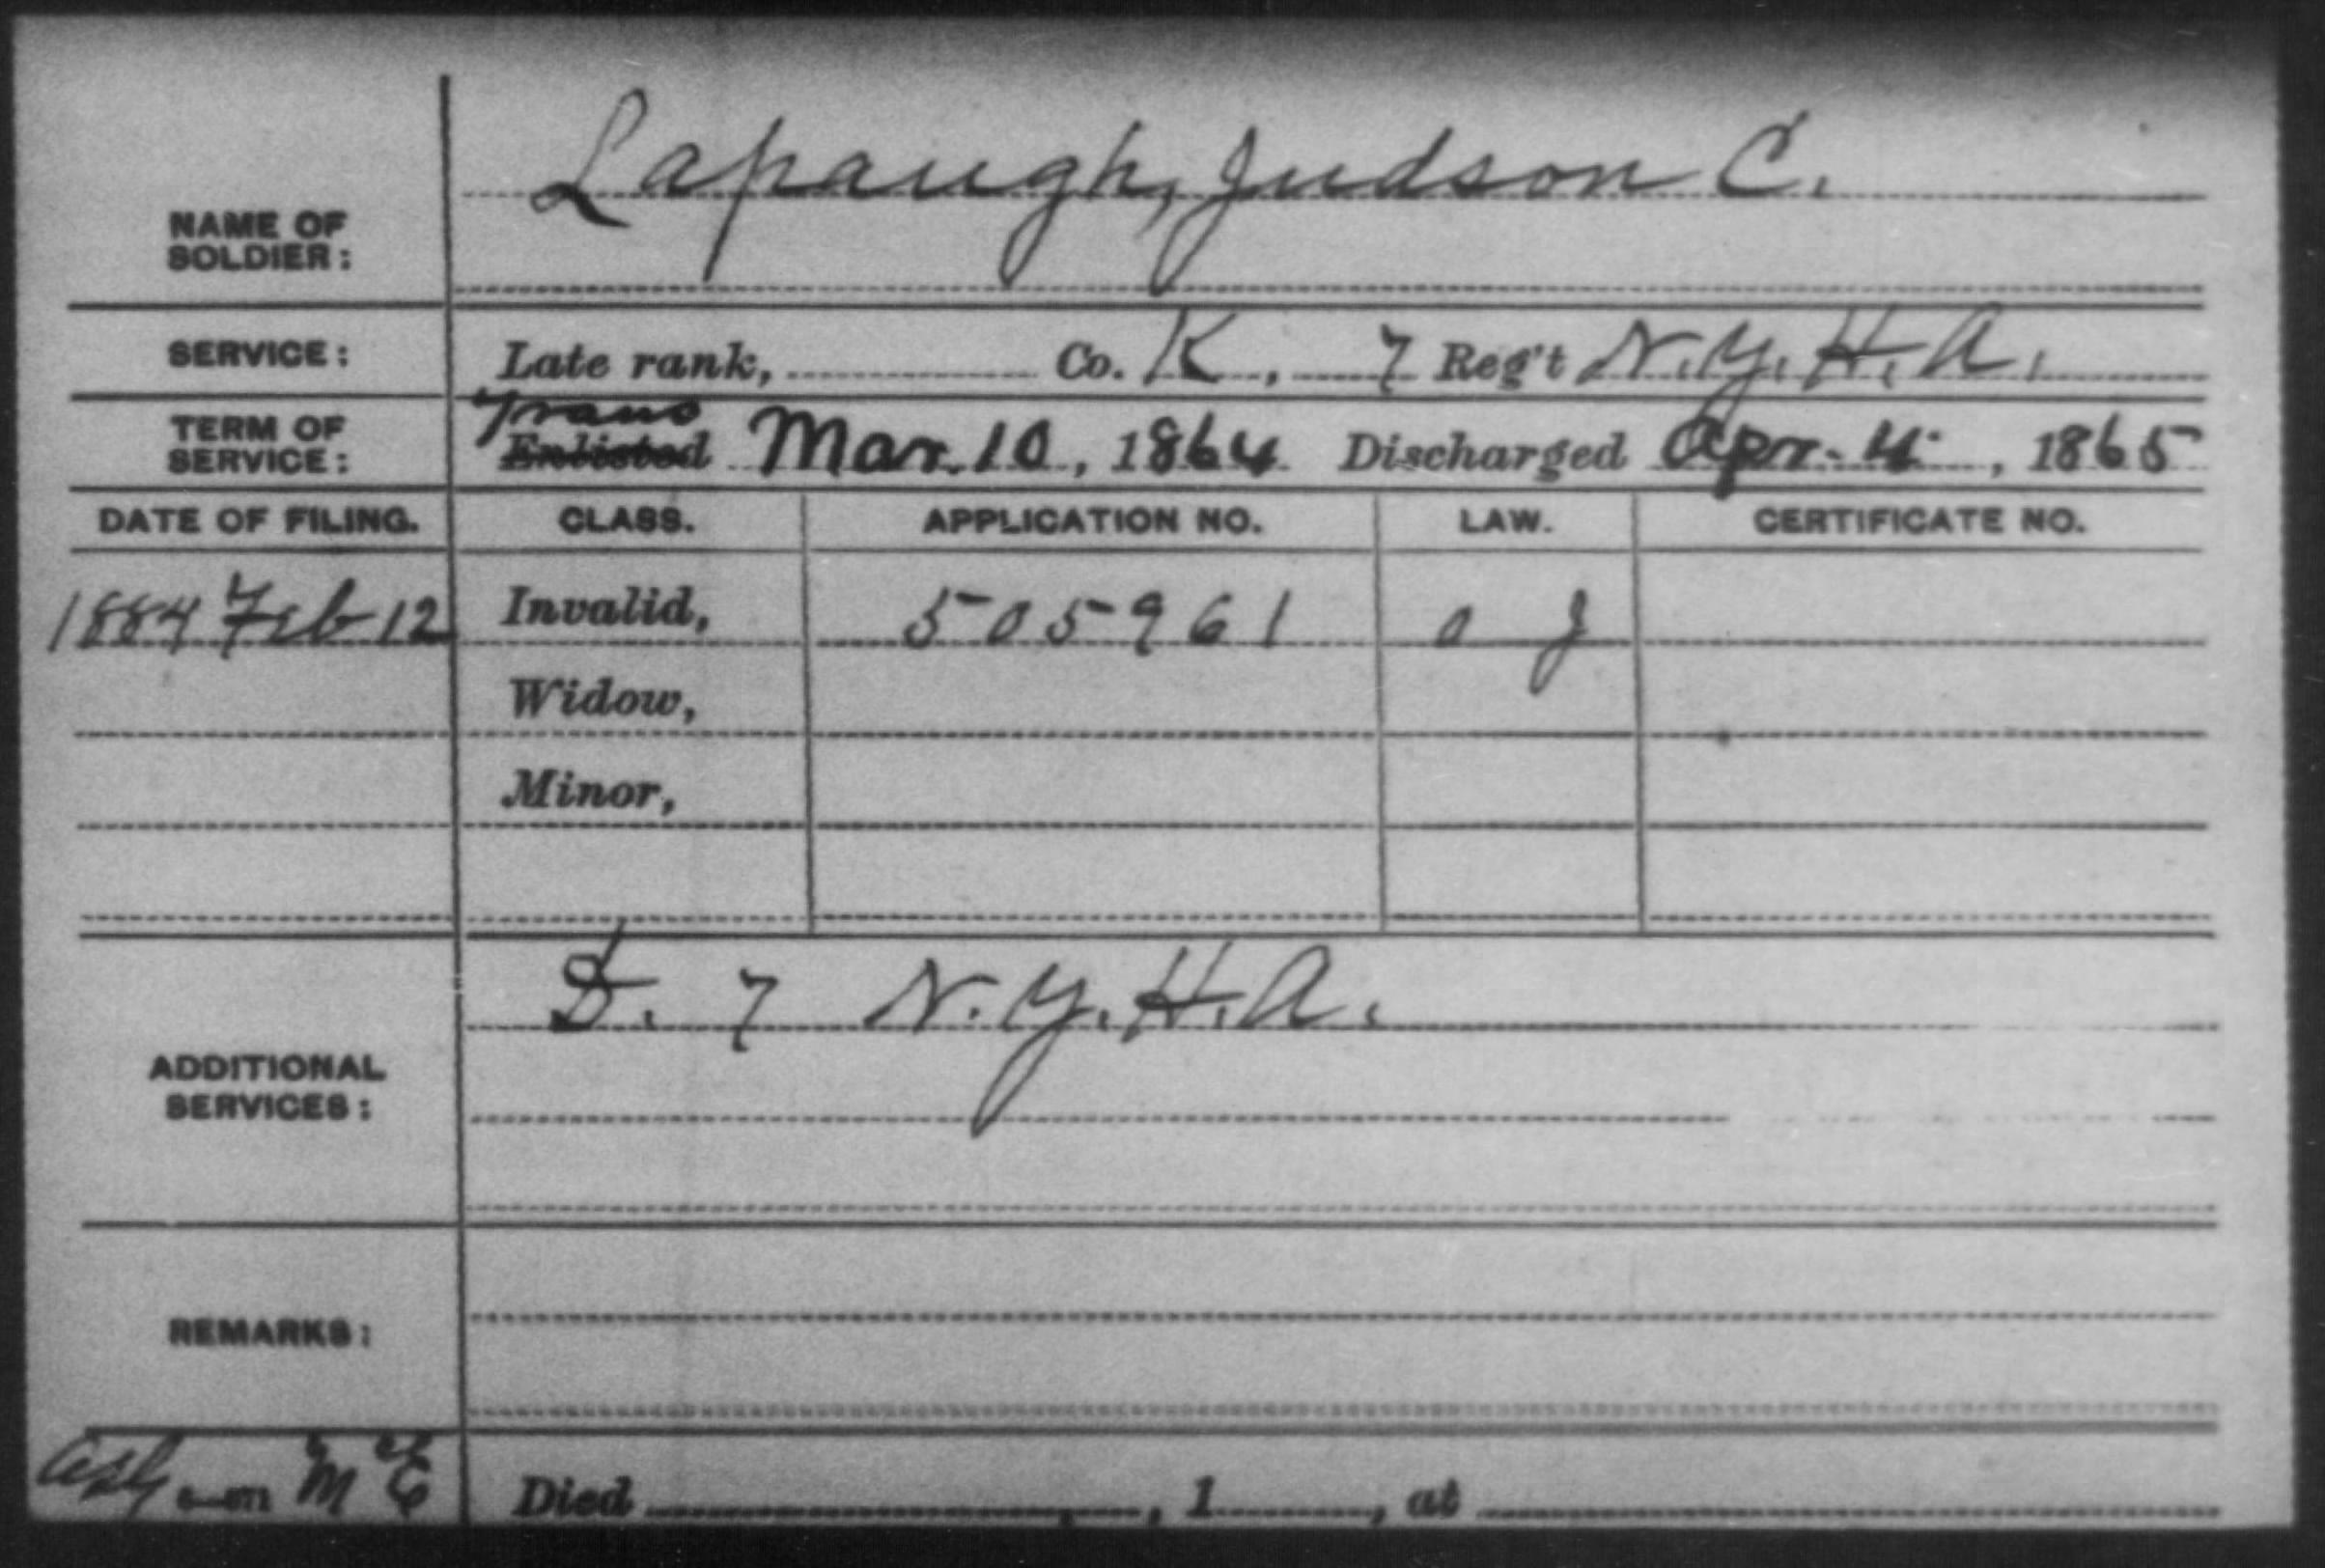 Lapaugh, Judson C.
NAME OF
SOLDIER:
SERVICE: Late rank, Co. K, 7 Reg't N.Y.H.A.
Trans
TERM OF
SERVICE: Enlisted Mar. 10, 1864 Discharged Apr. 4, 1865
DATE OF FILING. CLASS. APPLICATION NO. LAW. CERTIFICATE NO.
1884 Feb 12 Invalid, 505961
Widow,
Minor,
D. 7 N.Y.H.A.
ADDITIONAL
SERVICES:
REMARKS:
Died , 1 , at